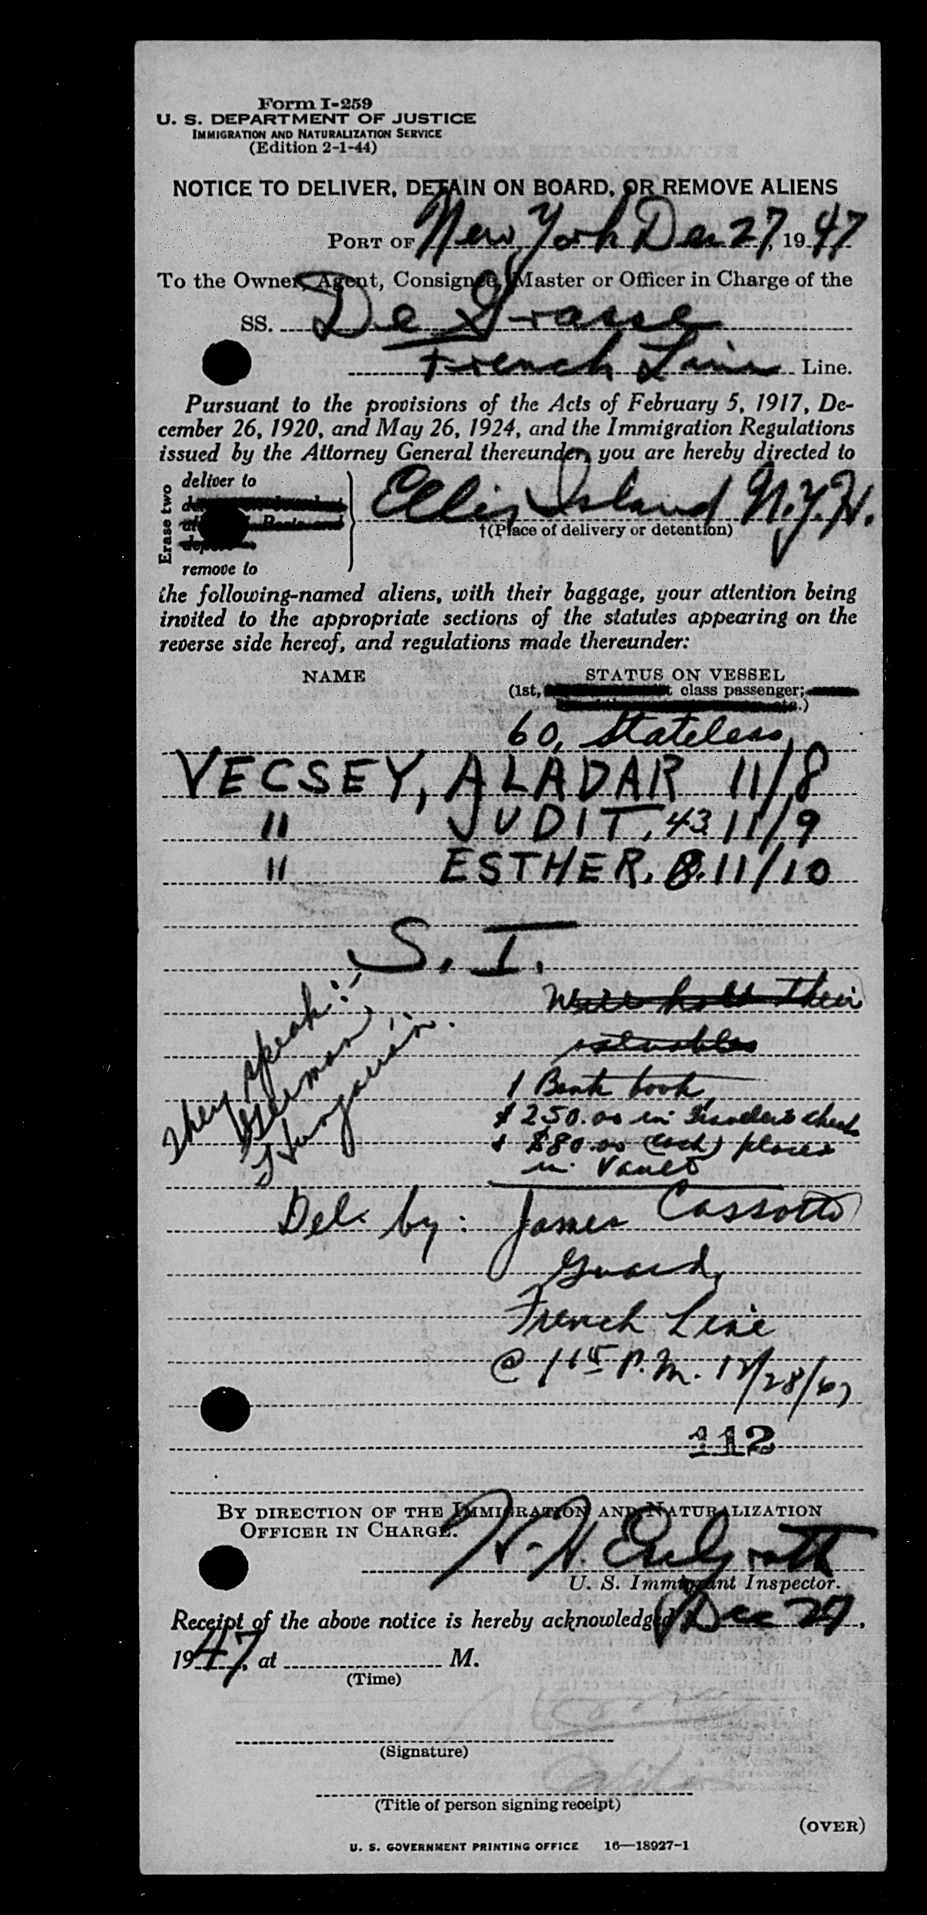 Form I-259
U. S. DEPARTMENT OF JUSTICE
IMMIGRATION AND NATURALIZATION SERVICE
(Edition 2-1-44)
NOTICE TO DELIVER, DETAIN ON BOARD, OR REMOVE ALIENS
PORT OF New York Dec 27, 1947
To the Owner, Agent, Consignee, Master or Officer in Charge of the
SS. De Grasse
French Line Line.
Pursuant to the provisions of the Acts of February 5, 1917, De-
cember 26, 1920, and May 26, 1924, and the Immigration Regulations
issued by the Attorney General thereunder, you are hereby directed to
Erase two
deliver to
remove to
Ellis Island N.Y.H.
†(Place of delivery or detention)
the following-named aliens, with their baggage, your attention being
invited to the appropriate sections of the statutes appearing on the
reverse side hereof, and regulations made thereunder:
NAME STATUS ON VESSEL
(1st, class passenger;
60, Stateless
VECSEY, ALADAR 11/8
" JUDIT, 43 11/9
" ESTHER, 8. 11/10
S. I.
They speak:-
German,
Hungarian.
Will hold their
valuables
1 Bank book,
$250.00 in Travelers check
& $80.00 (cash) placed
in Vault
Del. by: James Cassotto
Guard,
French Line
@ 1 15 P.M. 12/28/47
112
BY DIRECTION OF THE IMMIGRATION AND NATURALIZATION
OFFICER IN CHARGE.
U. S. Immigrant Inspector.
Receipt of the above notice is hereby acknowledged Dec 27,
1947, at M.
(Time)
(Signature)
(Title of person signing receipt)
(OVER)
U. S. GOVERNMENT PRINTING OFFICE 16—18927-1